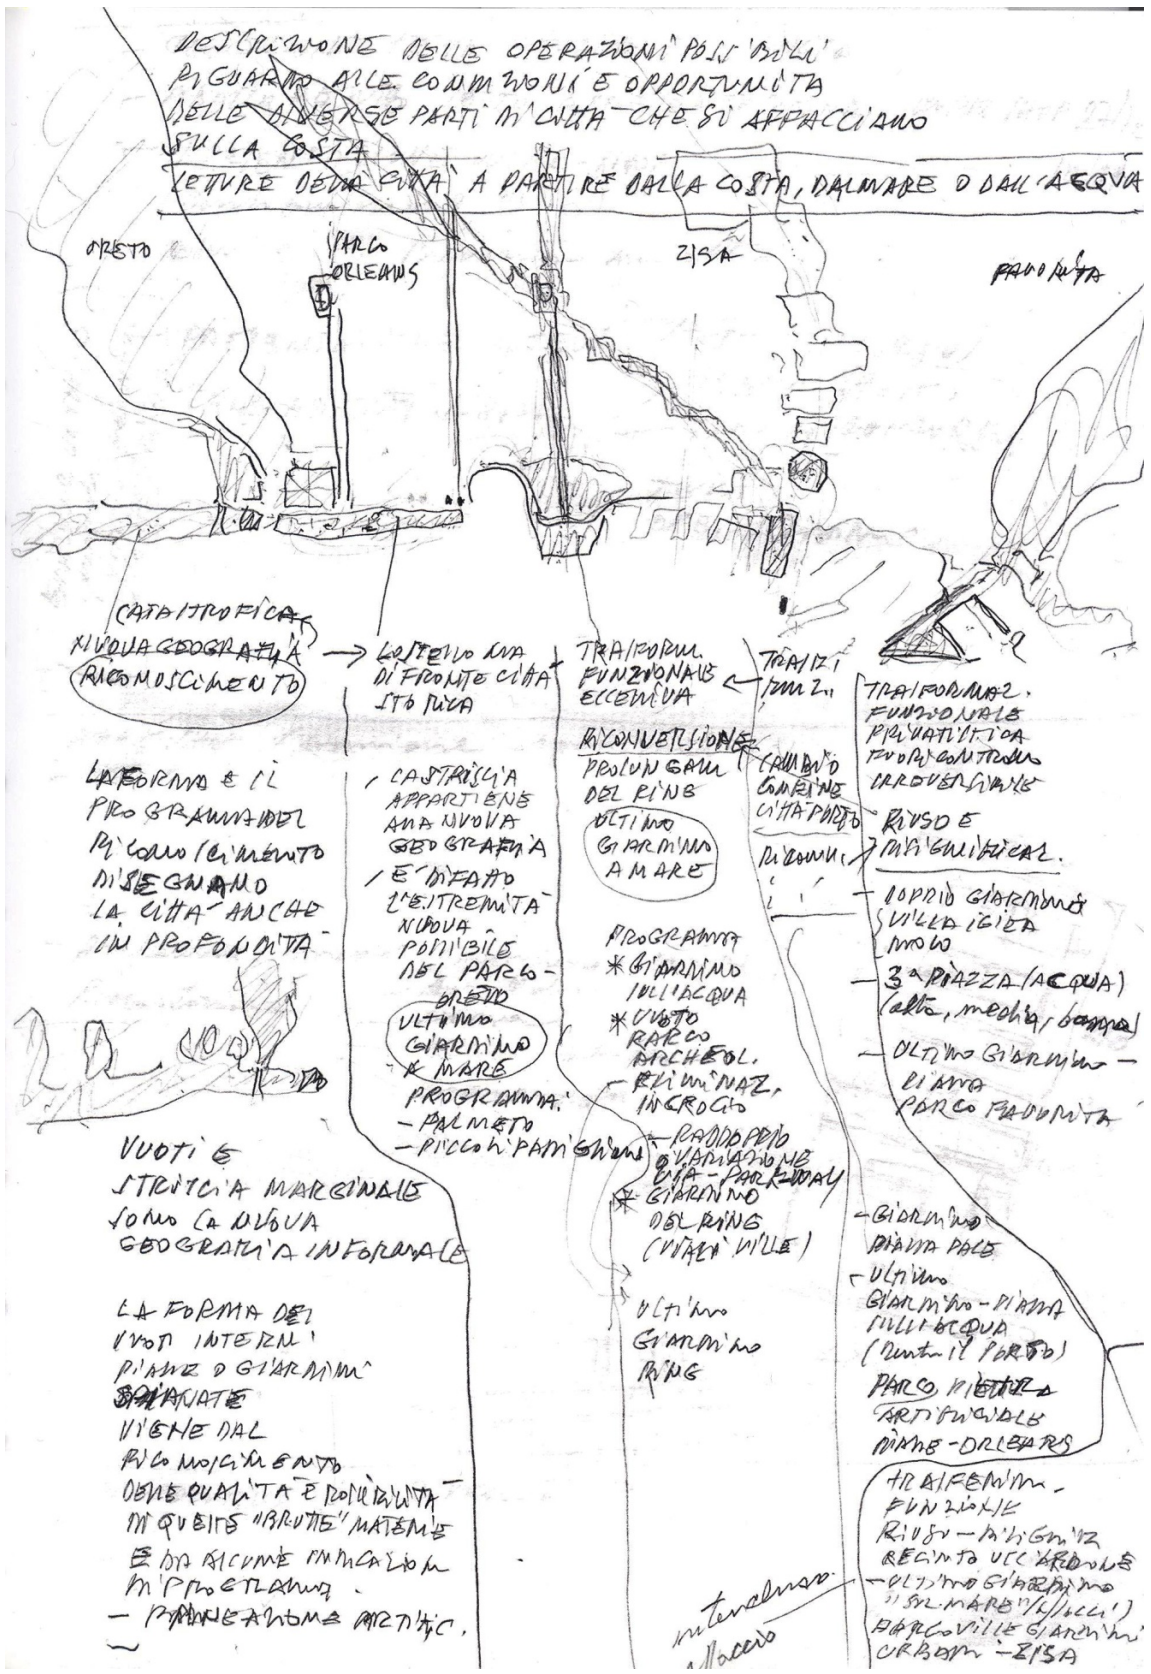 DESCRIZIONE DELLE OPERAZIONI POSSIBILI
RIGUARDO ALLE CONDIZIONI E OPPORTUNITA
DELLE DIVERSE PARTI DI CITTA CHE SI AFFACCIANO
SULLA COSTA
LETTURE DELLA CITTA A PARTIRE DALLA COSTA, DAL MARE O DALL'ACQUA
ORETO
PARCO
ORLEANS
ZISA
FAVORITA
CATASTROFICA
NUOVA GEOGRAFIA
RICONOSCIMENTO
LA FORMA E IL
PROGRAMMA DEL
RICONOSCIMENTO
DISEGNANO
LA CITTA' ANCHE
IN PROFONDITA
VUOTI E
STRISCIA MARGINALE
SONO LA NUOVA
GEOGRAFIA INFORMALE
LA FORMA DEI
VUOTI INTERNI
PIAZZE O GIARDINI
SPIANATE
VIENE DAL
RICONOSCIMENTO
DELLE QUALITA E POSSIBILITA
DI QUESTE "BRUTTE" MATERIE
E DA ALCUNE INDICAZIONI
DI PROGRAMMA.
ARTIFIC.
DI FRONTE CITTA
STORICA
LA STRISCIA
APPARTIENE
ALLA NUOVA
GEOGRAFIA
E' DI FATTO
L'ESTREMITA
NUOVA
POSSIBILE
DEL PARCO
ORETO
ULTIMO
GIARDINO
A MARE
PROGRAMMA:
- PALMETO
- PICCOLI PADIGLIONI
TRASFORM.
FUNZIONALE
ECCESSIVA
RICONVERSIONE
PROLUNGAM.
DEL RING
ULTIMO
GIARDINO
A MARE
PROGRAMMA
* GIARDINO
SULL'ACQUA
* VUOTO
PARCO
ARCHEOL.
- ELIMINAZ.
INCROCIO
- RADDOPPIO
O VARIAZIONE
VIA - PARKWAY
* GIARDINO
DEL RING
(VILLE)
ULTIMO
GIARDINO
RING
CAMBIO
CONFINE
CITTÀ PORTO
TRASFORMAZ.
FUNZIONALE
PRIVATISTICA
FUORI CONTROLLO
IRREVERSIBILE
RIUSO E
RISIGNIFICAZ.
- DOPPIO GIARDINO
VILLA IGIEA
MOLO
- 3ª PIAZZA (ACQUA)
(alta, media, bassa)
- ULTIMO GIARDINO -
PIANA
PARCO FAVORITA
- GIARDINO
- ULTIMO
GIARDINO - PIANA
SULL'ACQUA
(dentro il PORTO)
PARCO PIETRA
ARTIFICIALE
ORLEANS
FUNZIONE
RECINTO UCCIARDONE
- ULTIMO GIARDINO
"SUL MARE"
URBANI - ZISA